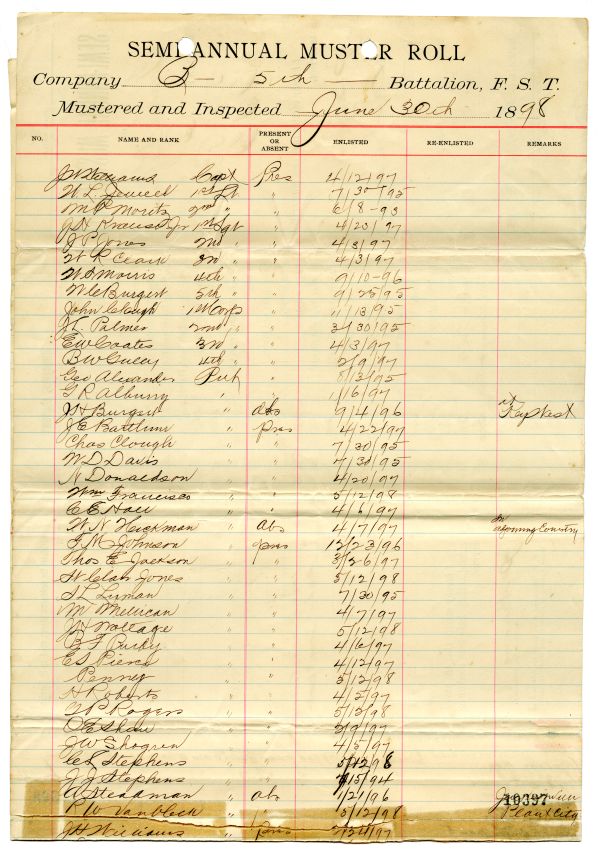 SEMI-ANNUAL MUSTER ROLL
Company B 5th Battalion, F. S. T.
Mustered and Inspected June 30th 1898
NO. NAME AND RANK PRESENT OR ABSENT ENLISTED RE-ENLISTED REMARKS
Capt Pres 4/12/97
W. L. Jewell 1st Lt " 7/30/95
Moritz 2nd " " 6/8-93
Jr 1st Sgt " 4/20/97
J P Jones 2nd " " 4/3/97
W R Clark 3d " " 4/3/97
Morris 4th " " 9/10-96
W C Burgert 5th " " 9/25/95
John Clough 1st Corp " 11/18/95
Palmer 2nd " " 3/30/95
E W Coates 3d " " 4/3/97
B W 4th " " 2/9/97
Geo Alexander Pvt " 5/3/95
G R Albury " " 1/6/97
Burgert " abs 9/4/96 at Key West
J E " pres 4/22/97
Chas Clough " " 7/30/95
W D Davis " " 7/30/95
N Donaldson " " 4/20/97
Wm Francisco " " 5/12/98
C E " " 4/6/97
W N Hickman " abs 4/7/97 In adjoining Country
Johnson " pres 12/23/96
Thos E Jackson " " 3/26/97
St Clair Jones " " 5/12/98
" " 7/30/95
M Millican " " 4/7/97
" " 5/12/98
B F " " 4/6/97
E S Pierce " " 4/12/97
Penney " " 5/12/98
H Roberts " " 4/5/97
Rogers " " 5/13/98
O E Shaw " " 2/9/97
J W Shogren " " 4/5/97
Stephens " " 5/12/98
J J Stephens " " 7/15/94
Steadman " abs 1/21/96
" " 5/12/98 Plant City
10397
J H Williams " pres 2/24/97